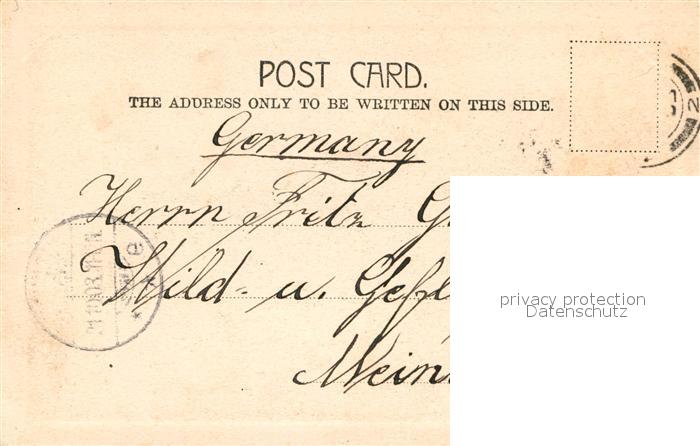 POST CARD.
THE ADDRESS ONLY TO BE WRITTEN ON THIS SIDE.
Germany
Herrn Fritz G
Wild- u. Gefl
Mein
privacy protection
Datenschutz